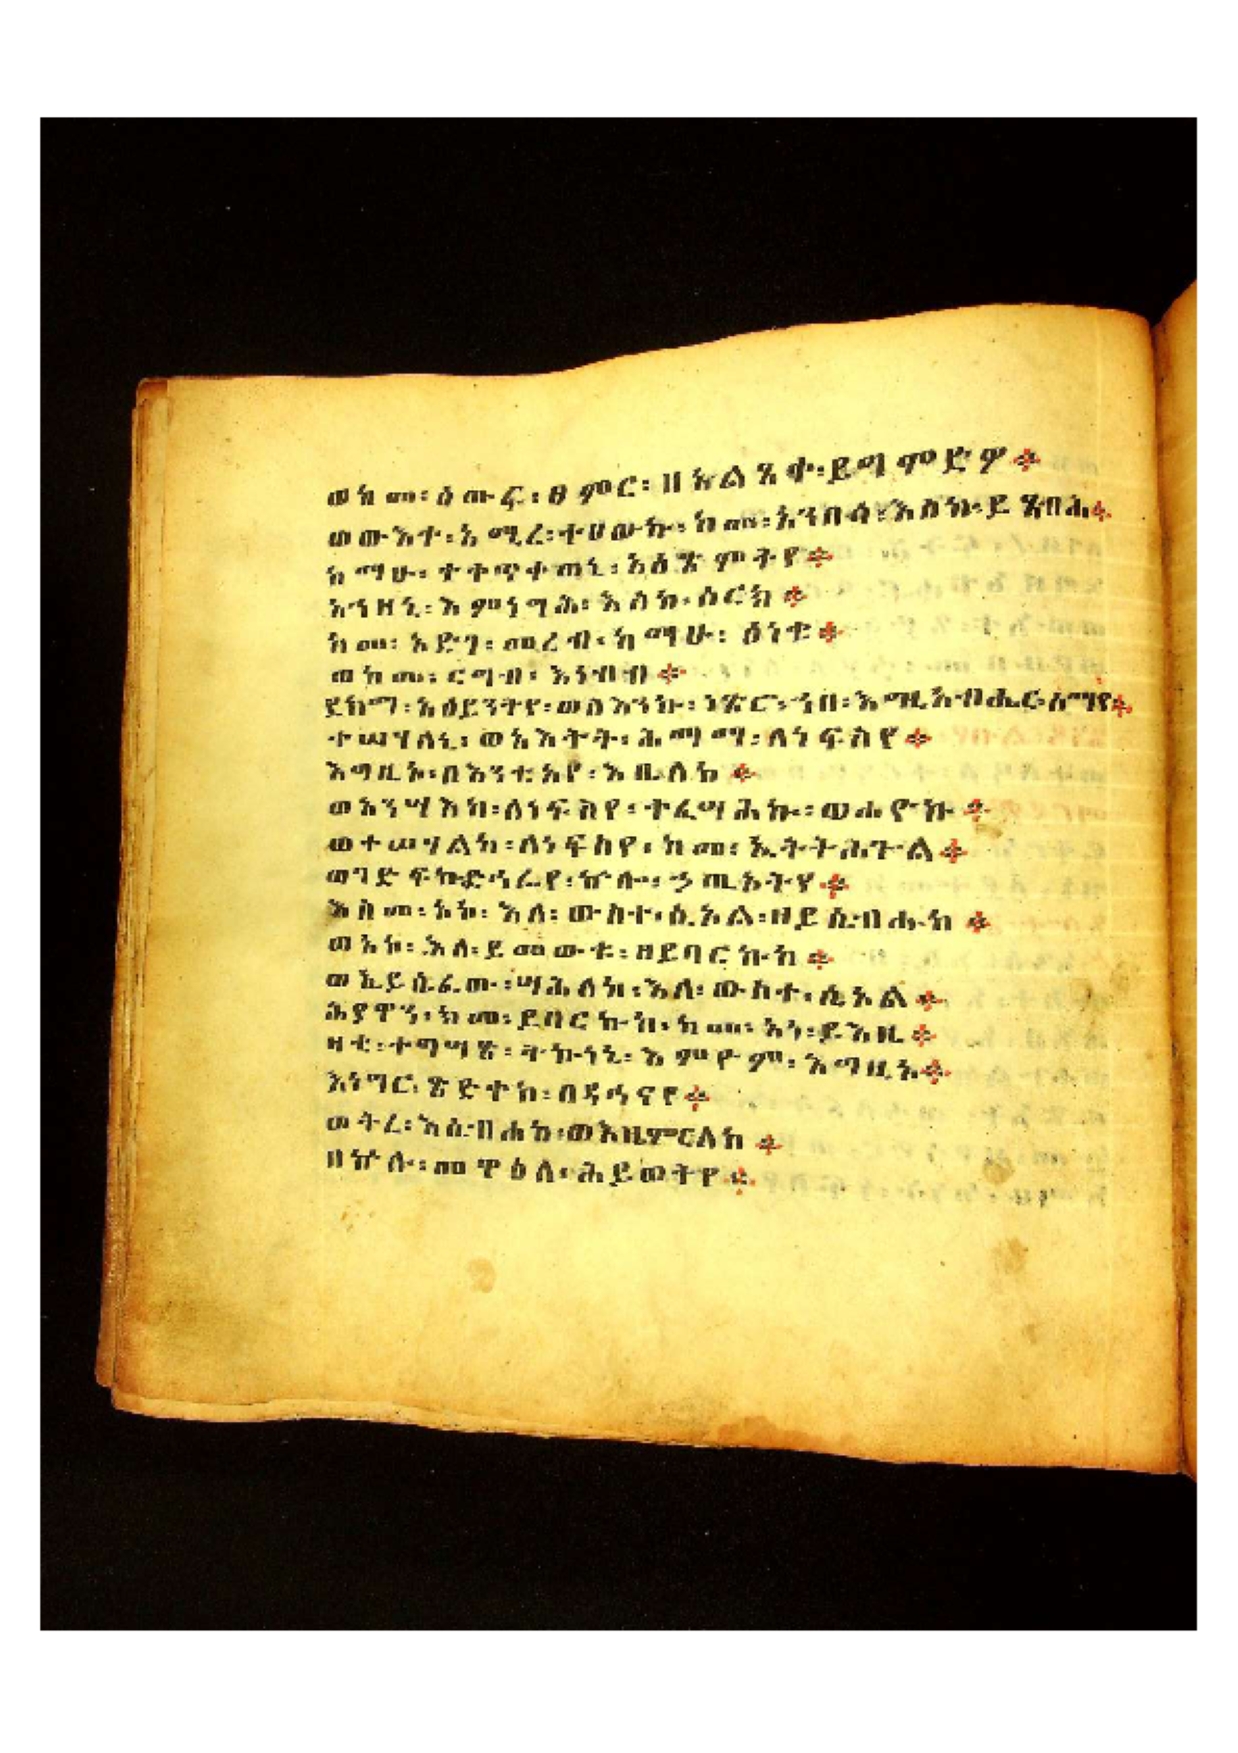 ወከመ፡ ዕውፌ፡ ፀምር፡ ዘአልጺቆ፡ ይግምድዎ።
ወውእተ፡ አሚረ፡ ተሀውኩ፡ ከመ፡ አንበሳ፡ እስከ፡ ይጼብሕ።
ከማሁ፡ ተቀጥቀጠኒ፡ አዕጽምትየ።
አኀዘኒ፡ እምነግሕ፡ እስከ፡ ሰርክ
ከመ፡ አድገ፡ መረብ፡ ከማሁ፡ ዕነቱ።
ወከመ፡ ርግብ፡ እነብብ።
ደክማ፡ አዕይንትየ፡ ወስእንኩ፡ ነጽሮ፡ ኀበ፡ እግዚአብሔር፡ ሰማየ።
ተሣሃለኒ፡ ወአእትት፡ ሕማማ፡ ለነፍስየ።
እግዚኦ፡ በእንቲአየ፡ እዜለከ
ወአንሣእከ፡ ለነፍስየ፡ ተፈሣሕኩ፡ ወሐዮኩ
ወተሣሃልከ፡ ለነፍስየ፡ ከመ፡ ኢትትሐጉል።
ወገድፍከ፡ ድኅሬየ፡ ኵሎ፡ ኃጢአትየ።
እስመ፡ አኮ፡ እለ፡ ውስተ፡ ሲኦል፡ ዘይሴብሑከ
ወአኮ፡ እለ፡ ይመውቱ፡ ዘይባርኩከ
ወኢይሴፈው፡ ሣህለከ፡ እለ፡ ውስተ፡ ሲኦል
ሕያዋን፡ ከመ፡ ይባርኩከ፡ ከመ፡ አነ፡ ይእዜ
ዘቲ፡ ተግሣጽ፡ ትኩነኒ፡ እምዮም፡ እግዚአ።
እነግር፡ ጽድተከ፡ በዳኅናየ።
ወትረ፡ እሴብሐከ፡ ወእዜምርለከ
በኵሉ፡ መዋዕለ፡ ሕይወትየ።